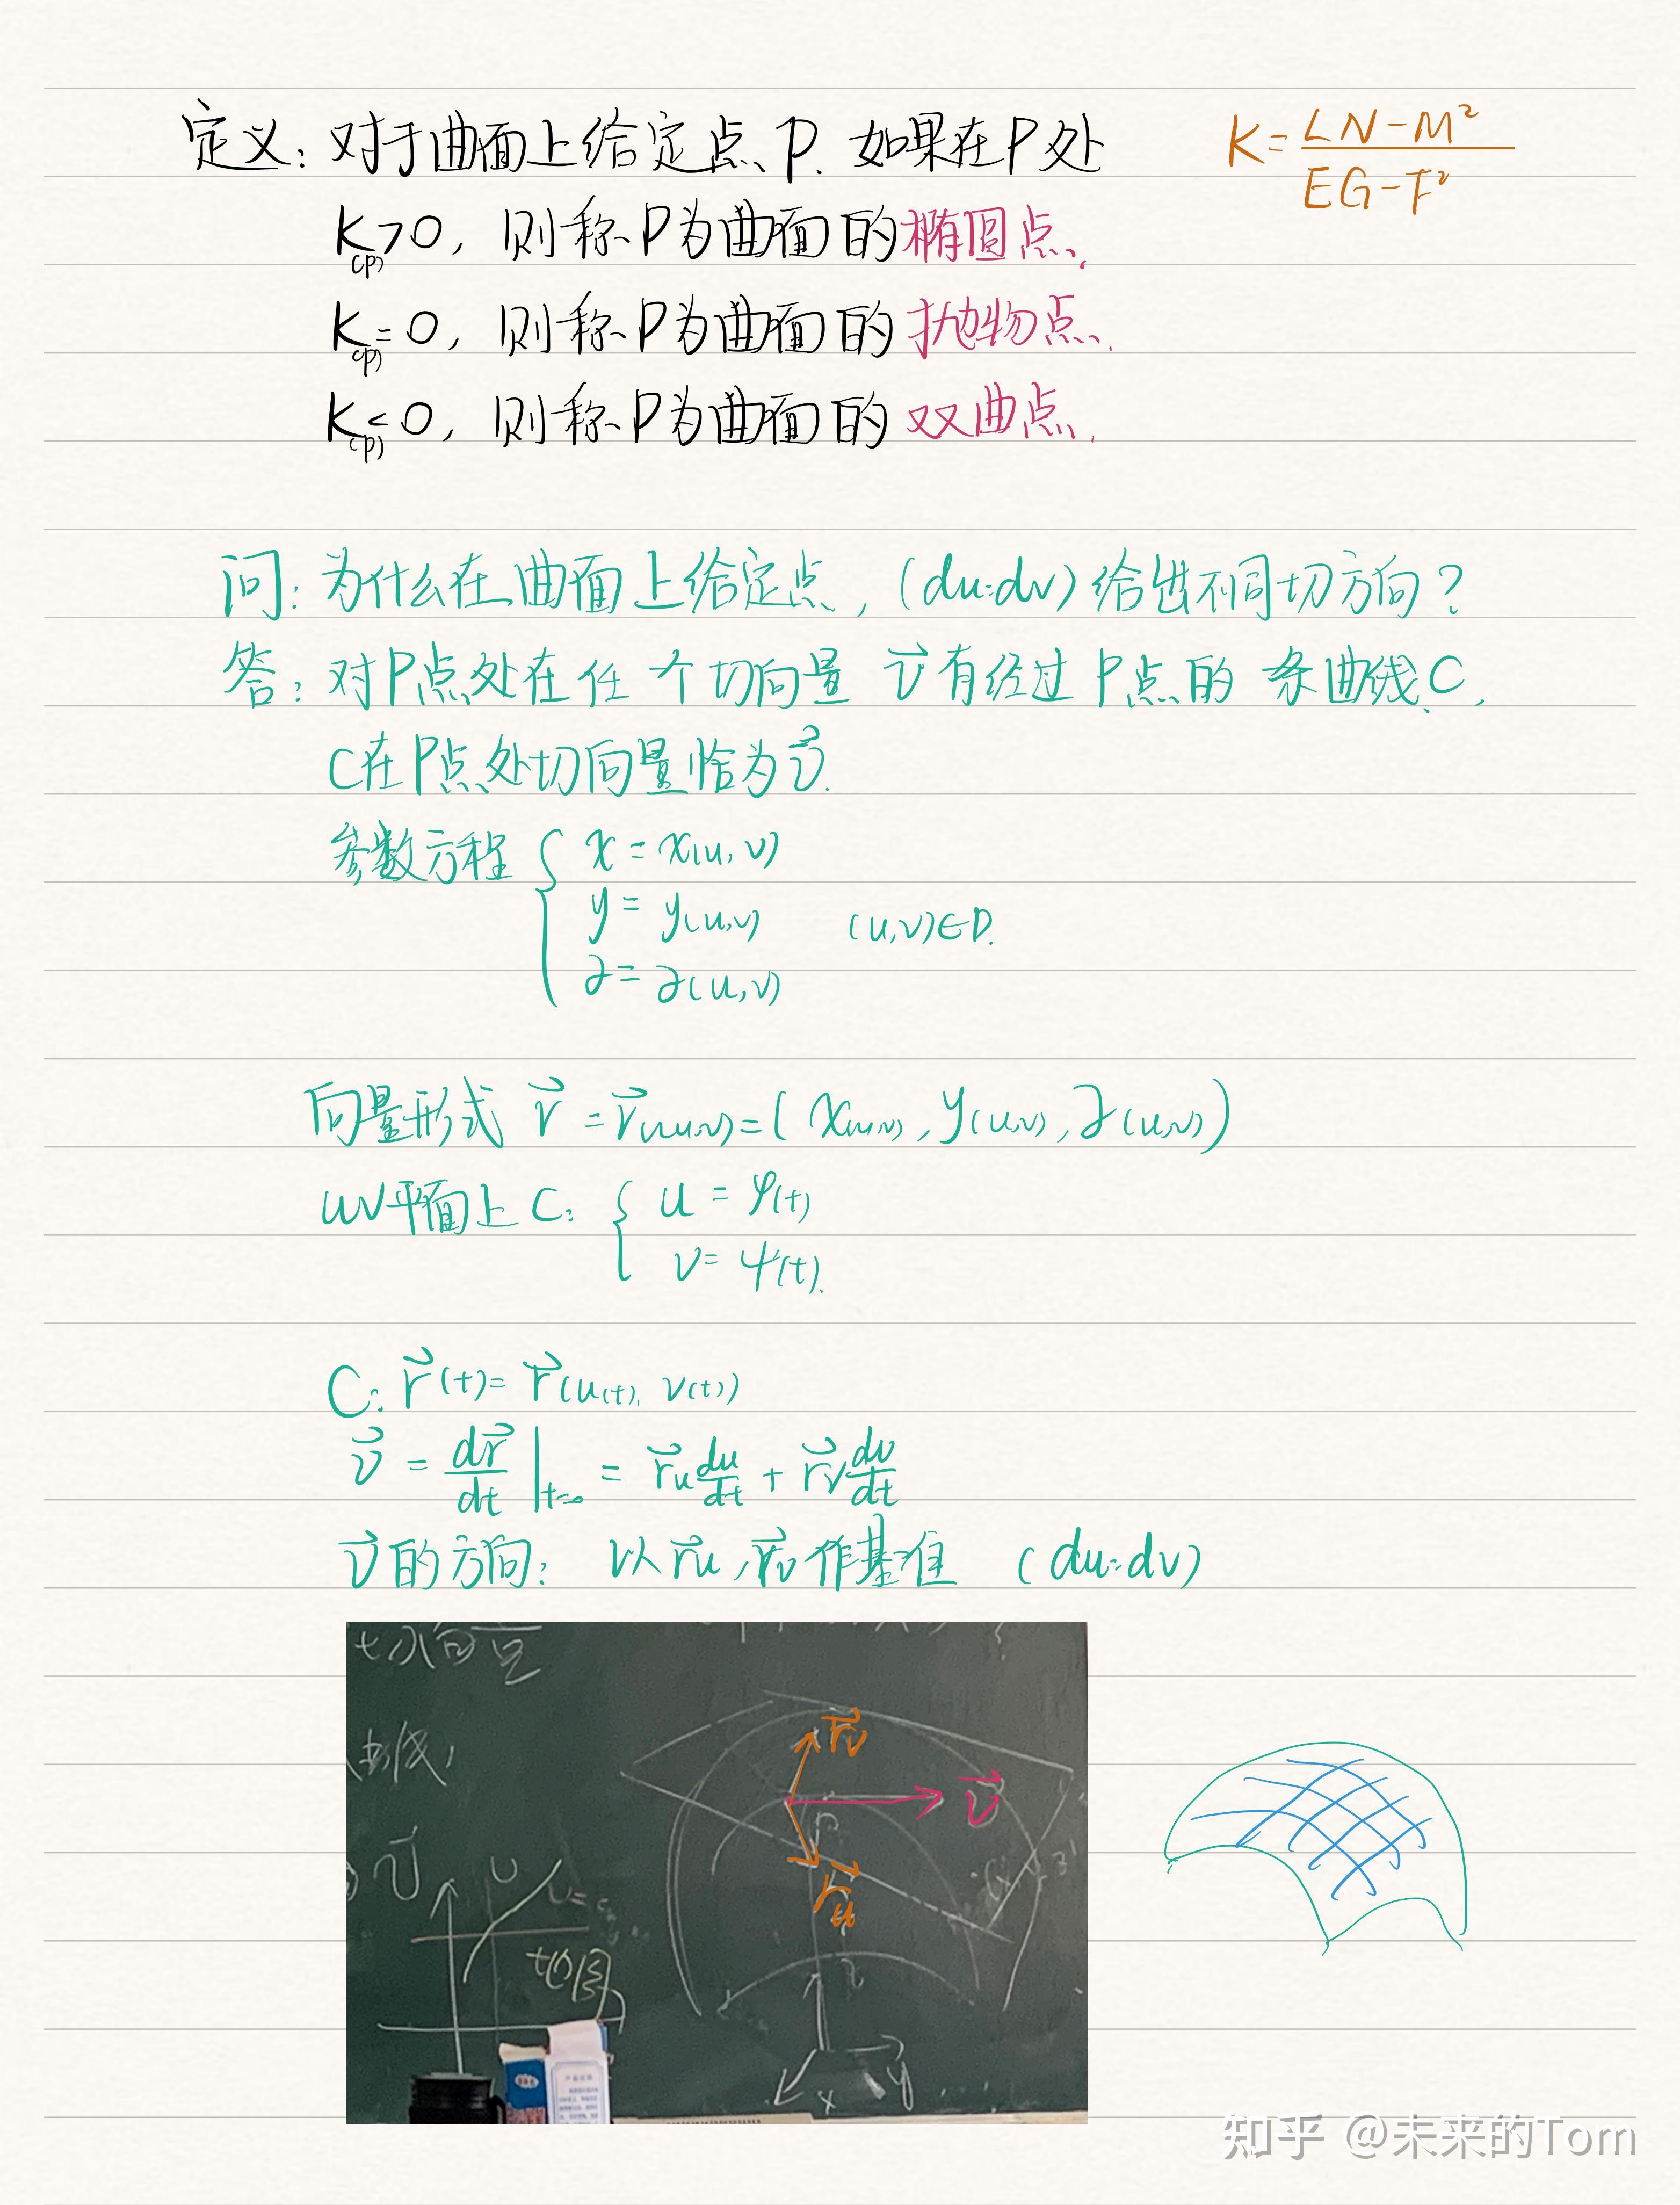 定义：对于曲面上给定点P. 如果在P处
K=\frac{LN-M²}{EG-F²}
K(p)>0，则称P为曲面的椭圆点.
K(p)=0，则称P为曲面的抛物点.
K(p)<0，则称P为曲面的双曲点.
问：为什么在曲面上给定点，(du:dv)给出不同切方向？
答：对P点处在任 个切向量 \vec{v} 有经过P点的 条曲线C.
C在P点处切向量恰为\vec{v}.
参数方程 { x = x(u,v)
y = y(u,v) (u,v)∈D.
z = z(u,v)
向量形式 \vec{r} = \vec{r}(u,v) = (x(u,v), y(u,v), z(u,v))
uv平面上C: { u = φ(t)
v = ψ(t).
C: \vec{r}(t) = \vec{r}(u(t), v(t))
\vec{v} = \frac{d\vec{r}}{dt}|_{t=0} = \vec{r}_u\frac{du}{dt} + \vec{r}_v\frac{dv}{dt}
\vec{v}的方向：以\vec{r}_u, \vec{r}_v作基准 (du:dv)
切向量
\vec{r}_v
曲线,
\vec{v}
P
\vec{v}
U
\vec{r}_u
z
x y
知乎 @未来的Tom